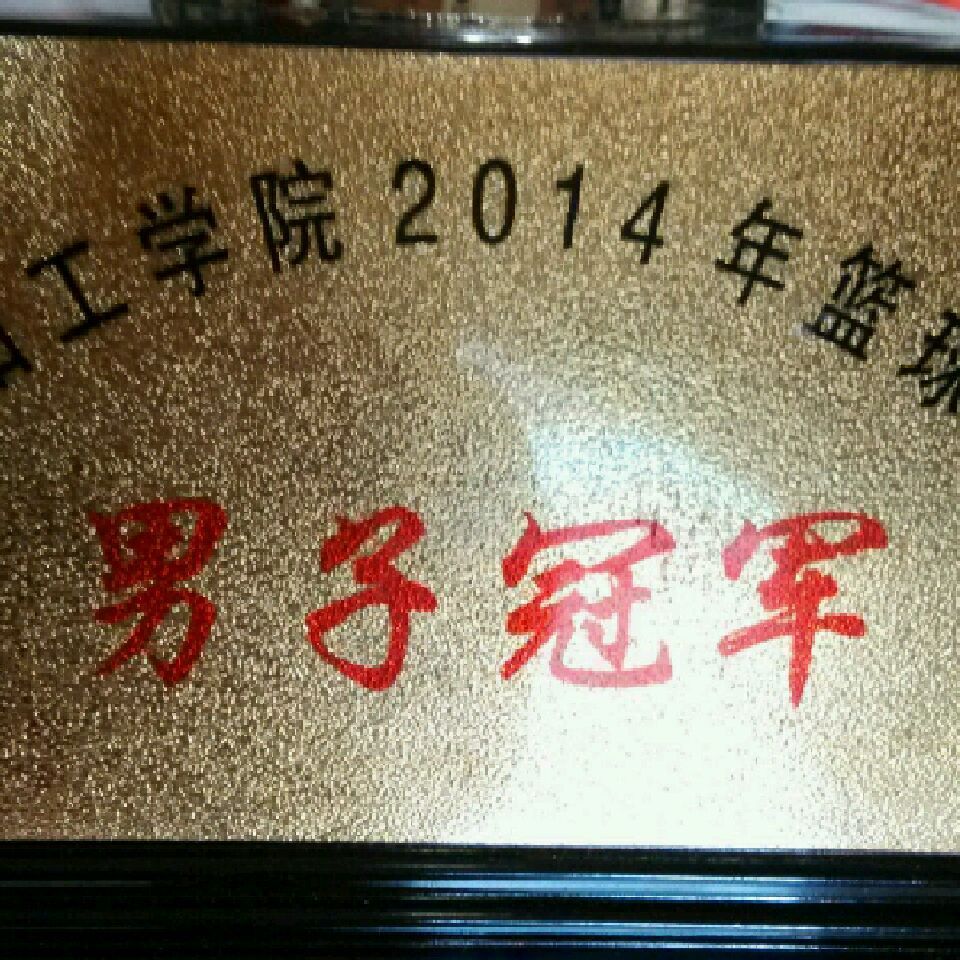 工学院2014年篮球
男子冠军